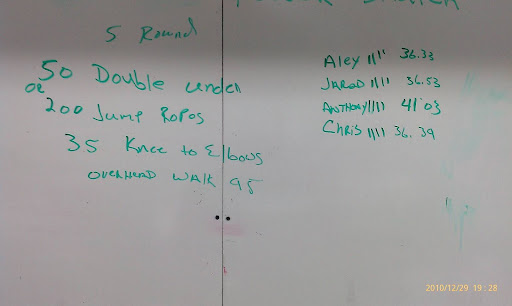 5 Round
50 Double under
OR
200 Jump Ropes
35 Knee to Elbows
OVERHEAD WALK 95
Aley //// 36.33
JAROD //// 36.53
ANTHONY //// 41:03
Chris //// 36.39
2010/12/29 19:28